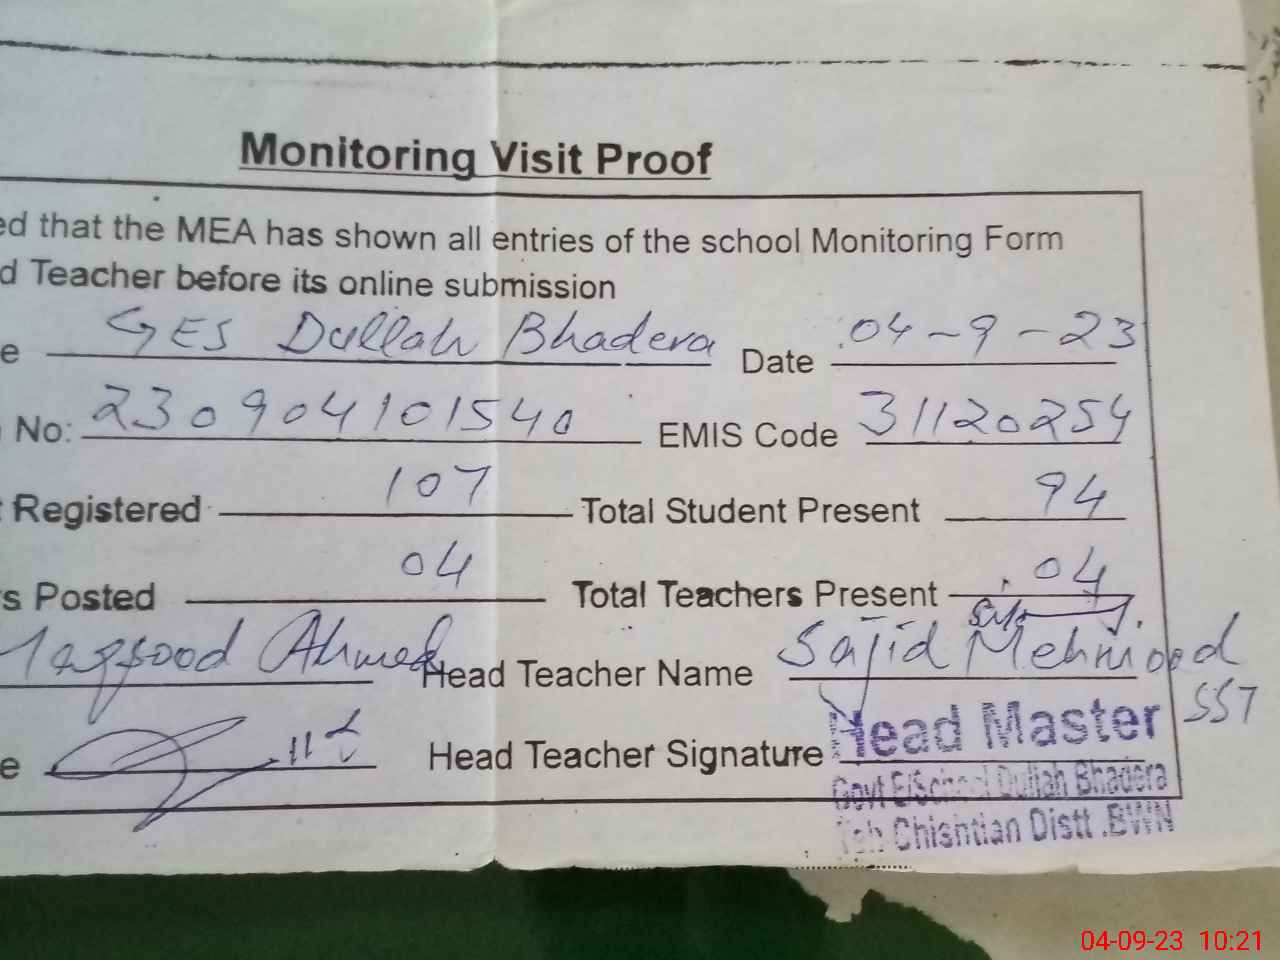 Monitoring Visit Proof
ed that the MEA has shown all entries of the school Monitoring Form
d Teacher before its online submission
e GES Dullah Bhadera Date 04-9-23
No: 230904101540 EMIS Code 31120254
t Registered 107 Total Student Present 94
s Posted 04 Total Teachers Present 04
Maqsood Ahmed Head Teacher Name Sajid Mehmood
SST
e Head Teacher Signature
Head Master
Govt E/School Dullah Bhadera
Teh Chishtian Distt .BWN
04-09-23 10:21